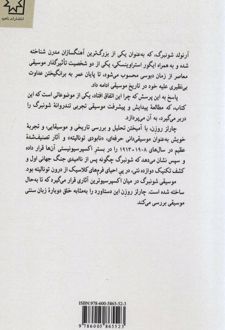 انتشارات ناهید
آرنولد شونبرگ، که به‌عنوان یکی از بزرگ‌ترین آهنگسازان مدرن شناخته
شده و به همراه ایگور استراوینسکی، یکی از دو شخصیت تأثیرگذار موسیقی
معاصر از زمان دبوسی محسوب می‌شود، تا پایان عمر به برانگیختن عداوت
بی‌نظیری علیه خود در تاریخ موسیقی ادامه داد.
پاسخ به این پرسش که چرا این اتفاق افتاد، یکی از موضوعاتی است که این
کتاب، که مطالعهٔ پیدایش و پیشرفت موسیقی تندروانهٔ شونبرگ را
دربر می‌گیرد، به آن می‌پردازد.
چارلز روزن، با آمیختن تحلیل و بررسی تاریخی و موسیقایی، و تجربهٔ
خویش به‌عنوان موسیقی‌دانی حرفه‌ای، «نابودی تونالیته» و آثار تصنیف‌شدهٔ
عظیم در سال‌های ۱۹۰۸-۱۹۱۳ را در بستر اکسپرسیونیستی آن‌ها قرار داده
و سپس نشان می‌دهد که شونبرگ چگونه پس از ناامیدی جنگ جهانی اول و
کشف تکنیک دوازده نتی، در پی احیای فرم‌های کلاسیک از درون تونالیته بود.
موسیقی شونبرگ در میان اکسپرسیوترین آثاری قرار می‌گیرد که تا به‌حال
ساخته شده است. چارلز روزن این دستاورد را به‌مثابه خلق دوبارهٔ زبان سنتی
موسیقی بررسی می‌کند.
ISBN: 978-600-5865-52-3
9 786005 865523